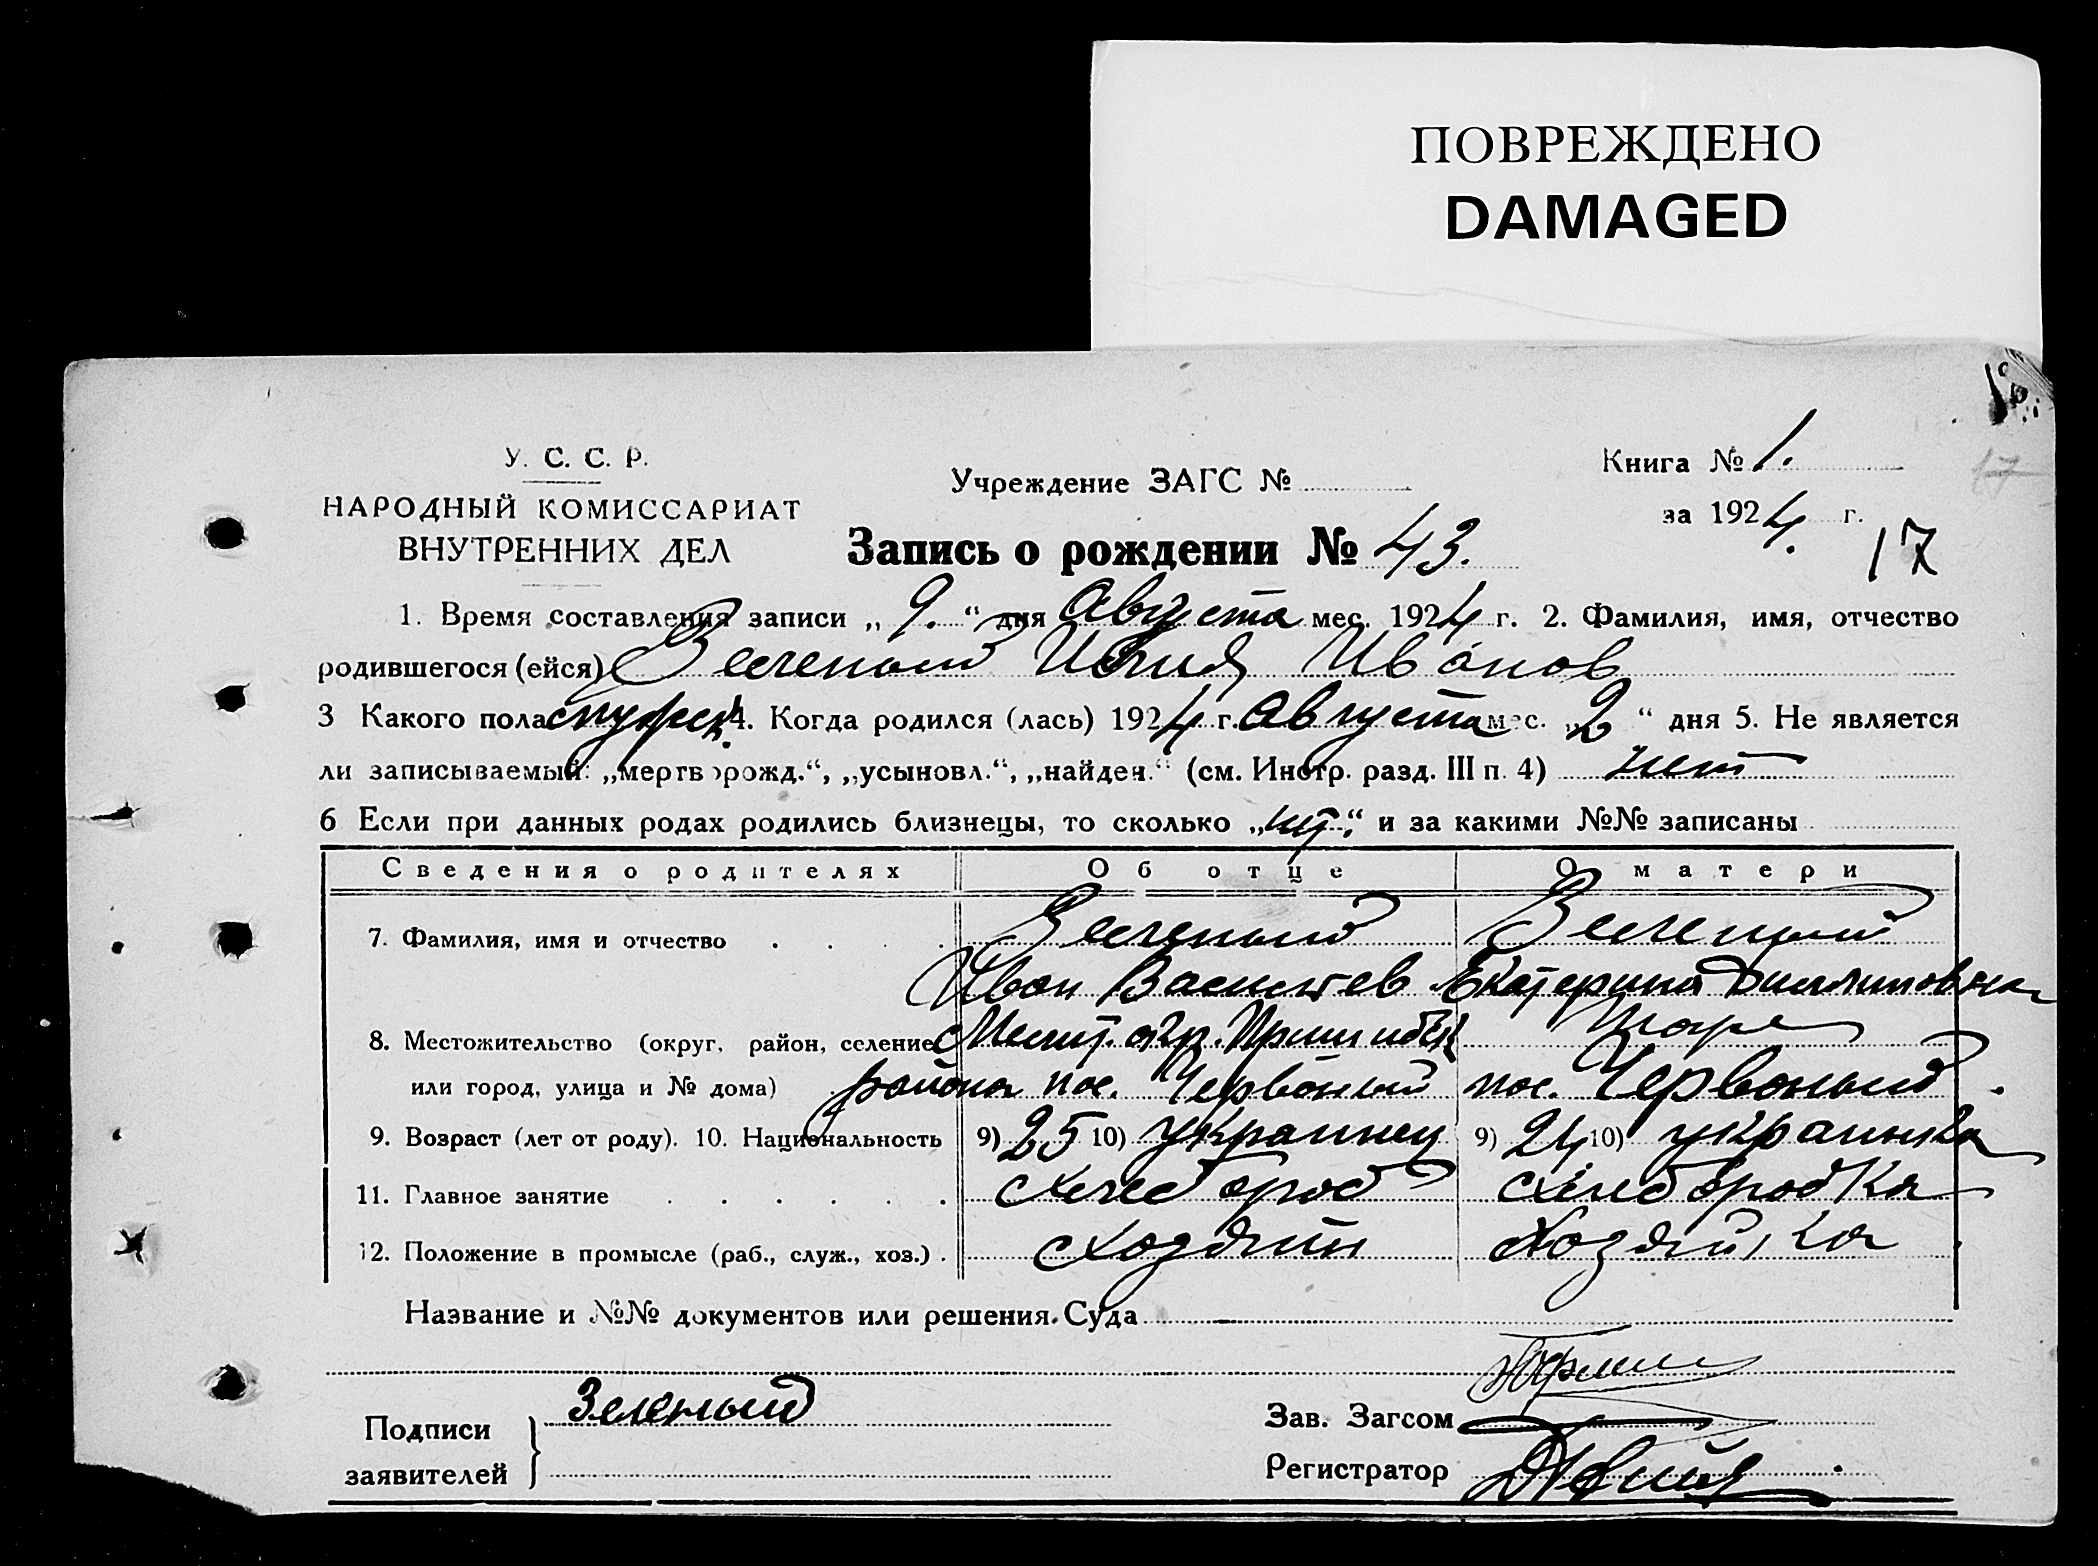 ПОВРЕЖДЕНО
DAMAGED
У. С. С. Р.
НАРОДНЫЙ КОМИССАРИАТ
ВНУТРЕННИХ ДЕЛ
Учреждение ЗАГС №
Книга № 1.
за 1924 г.
17
17
Запись о рождении № 43.
1. Время составления записи „ 9. “ дня Августа мес. 1924 г. 2. Фамилия, имя, отчество
родившегося (ейся) Зеленый Иванов
3 Какого пола мужск. 4. Когда родился (лась) 1924 г. Августа мес. „2“ дня 5. Не является
ли записываемый: „мертворожд.“, „усыновл.“, „найден.“ (см. Инстр. разд. III п. 4) нет
6 Если при данных родах родились близнецы, то сколько „нет“ и за какими №№ записаны
Сведения о родителях Об отце О матери
7. Фамилия, имя и отчество Зеленый Зеленый
Иван Васильев Екатерина
8. Местожительство (округ, район, селение Мелит. окр. Пришибск тоже
или город, улица и № дома) района пос. Червоный пос. Червоный
9. Возраст (лет от роду). 10. Национальность 9) 25 10) украинец 9) 24 10) украинка
11. Главное занятие хлебороб хлеборобка
12. Положение в промысле (раб., служ., хоз.) хозяин хозяйка
Название и №№ документов или решения Суда
Подписи заявителей Зеленый
Зав. Загсом
Регистратор